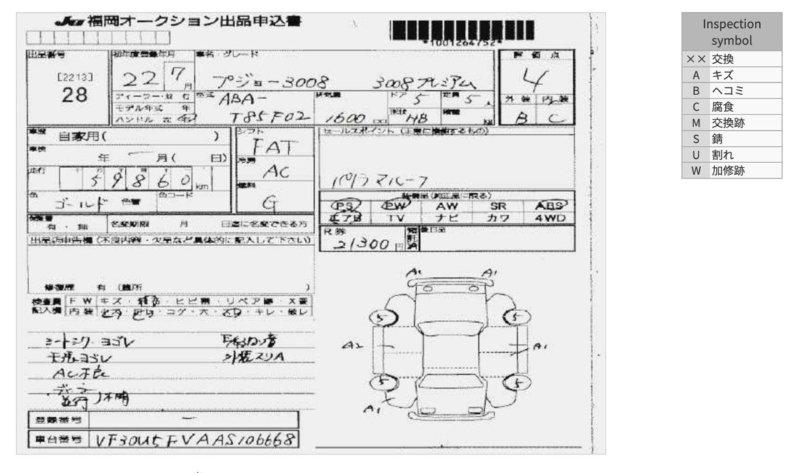 JU 福岡オークション出品申込書
*1001264752*
出品番号
[2213]
28
初年度登録年月
22 7月
車名・グレード
プジョー3008 3008プレミアム
評価点
4
外装 内装
B C
ディーラー・並 行
モデル年式 年
ハンドル 左 右
型式
ABA-
T85F02
排気量
1600 cc
ドア
5
形状
HB
定員
5人
積載
車歴
自家用( )
車検
年 月( 日)
走行
59860 km
色
ゴールド
色替
色コード
シフト
FAT
冷房
AC
燃料
G
セールスポイント
パノラマルーフ
装備品(純正品に限る)
PS PW AW SR ABS
エアB TV ナビ カワ 4WD
R券
21300円
後日品
有・無
名変期限 月 日迄に名変できる方
出品店申告欄(不良内容・欠品など具体的に記入して下さい)
修復歴 有(箇所 )
検査員
記入欄
FW キズ・ヒビ割・リペア跡・X要
内装 コゲ・穴・キレ・破レ
シートシワ・ヨゴレ
天張ヨゴレ
AC不良
外装スリA
並行
不明
A1 A1
5 5
A2 A1
5 5
A1
登録番号 ー
車台番号 VF30U5FVAAS106668
Inspection
symbol
×× 交換
A キズ
B ヘコミ
C 腐食
M 交換跡
S 錆
U 割れ
W 加修跡